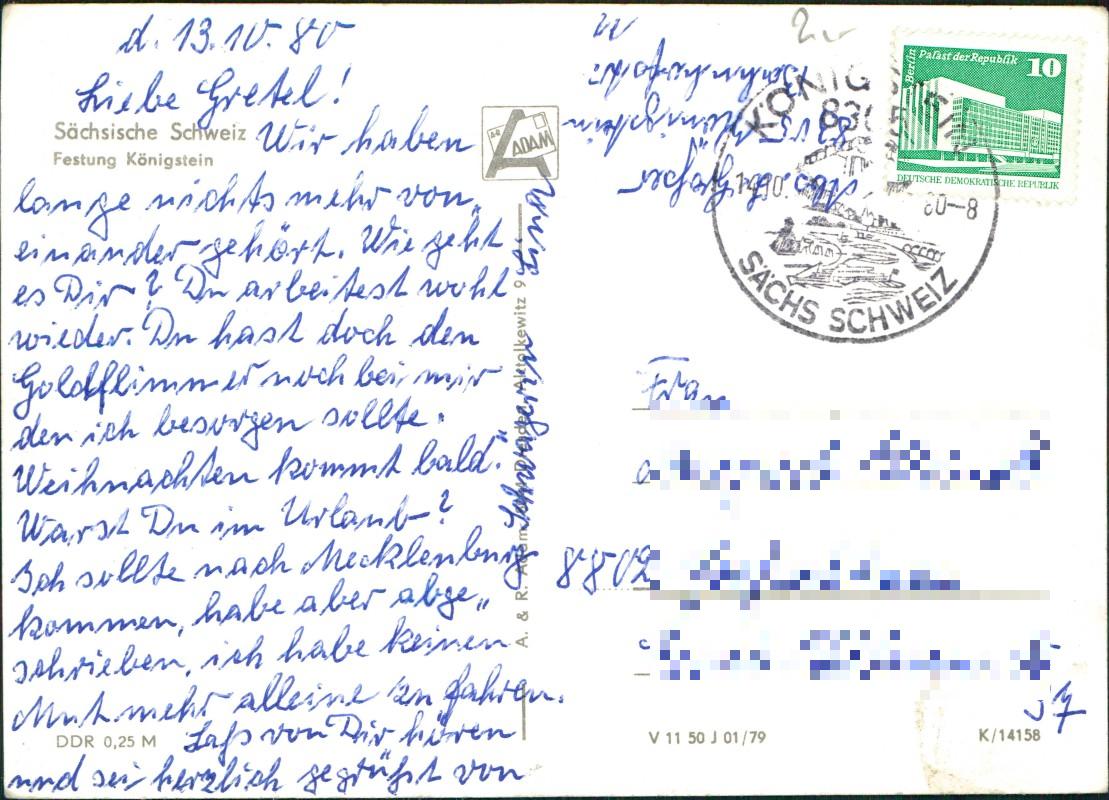 d. 13.10.80
Liebe Gretel!
Sächsische Schweiz
Festung Königstein
Wir haben
lange nichts mehr von„
einander gehört. Wie geht
es Dir? Du arbeitest wohl
wieder. Du hast doch den
Goldflimmer noch bei mir
den ich besorgen sollte.
Weihnachten kommt bald."
Warst Du im Urlaub?
Ich sollte nach Mecklenburg
kommen, habe aber abge„
schrieben, ich habe keinen
Mut mehr alleine zu fahren.
Laß von Dir hören
und sei herzlich gegrüßt von
Schwägerin
DDR 0,25 M
ADAM
A. & R. Adam, Dresden
9
Abs.
8305 Königstein
KÖNIGSTEIN
830
14.10.
80-8
SÄCHS SCHWEIZ
Berlin Palast der Republik 10
DEUTSCHE DEMOKRATISCHE REPUBLIK
Frau
8802
V 11 50 J 01/79
K/14158